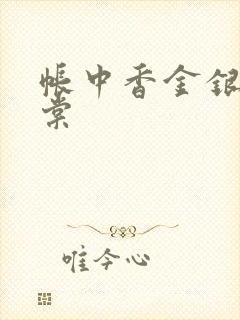 帐中香金银
棠
唯今心